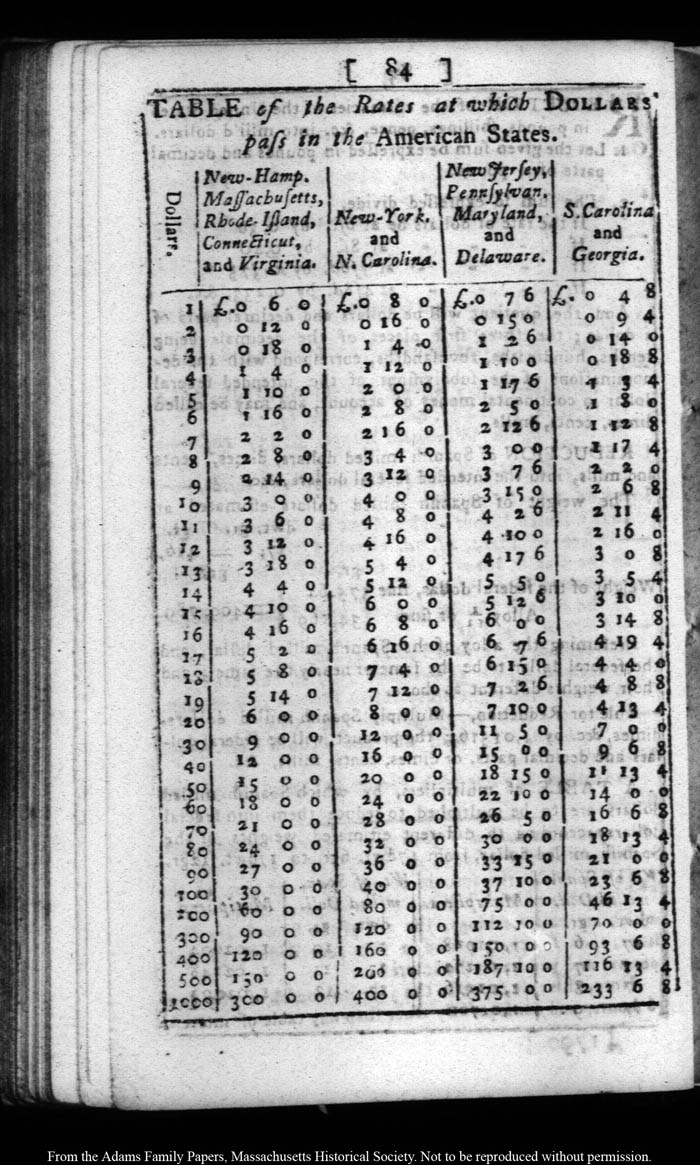 [ 84 ]
TABLE of the Rates at which DOLLARS
paſs in the American States.
Dollars.
New-Hamp.
Maſſachuſetts,
Rhode-Iſland,
Connecticut,
and Virginia.
New-York.
and
N. Carolina.
New Jerſey,
Pennſylvan.
Maryland,
and
Delaware.
S. Carolina
and
Georgia.
1 £.0 6 0 £.0 8 0 £.0 7 6 £. 0 4 8
2 0 12 0 0 16 0 0 15 0 0 9 4
3 0 18 0 1 4 0 1 2 6 0 14 0
4 1 4 0 1 12 0 1 10 0 0 18 8
5 1 10 0 2 0 0 1 17 6 1 3 4
6 1 16 0 2 8 0 2 5 0 1 8 0
7 2 2 0 2 16 0 2 12 6 1 12 8
8 2 8 0 3 4 0 3 0 0 1 17 4
9 2 14 0 3 12 0 3 7 6 2 2 0
10 3 0 0 4 0 0 3 15 0 2 6 8
11 3 6 0 4 8 0 4 2 6 2 11 4
12 3 12 0 4 16 0 4 10 0 2 16 0
13 3 18 0 5 4 0 4 17 6 3 0 8
14 4 4 0 5 12 0 5 5 0 3 5 4
15 4 10 0 6 0 0 5 12 6 3 10 0
16 4 16 0 6 8 0 6 0 0 3 14 8
17 5 2 0 6 16 0 6 7 6 4 19 4
18 5 8 0 7 4 0 6 15 0 4 4 0
19 5 14 0 7 12 0 7 2 6 4 8 8
20 6 0 0 8 0 0 7 10 0 4 13 4
30 9 0 0 12 0 0 11 5 0 7 0 0
40 12 0 0 16 0 0 15 0 0 9 6 8
50 15 0 0 20 0 0 18 15 0 11 13 4
60 18 0 0 24 0 0 22 10 0 14 0 0
70 21 0 0 28 0 0 26 5 0 16 6 8
80 24 0 0 32 0 0 30 0 0 18 13 4
90 27 0 0 36 0 0 33 15 0 21 0 0
100 30 0 0 40 0 0 37 10 0 23 6 8
200 60 0 0 80 0 0 75 0 0 46 13 4
300 90 0 0 120 0 0 112 10 0 70 0 0
400 120 0 0 160 0 0 150 0 0 93 6 8
500 150 0 0 200 0 0 187 10 0 116 13 4
1000 300 0 0 400 0 0 375 0 0 233 6 8
From the Adams Family Papers, Massachusetts Historical Society. Not to be reproduced without permission.